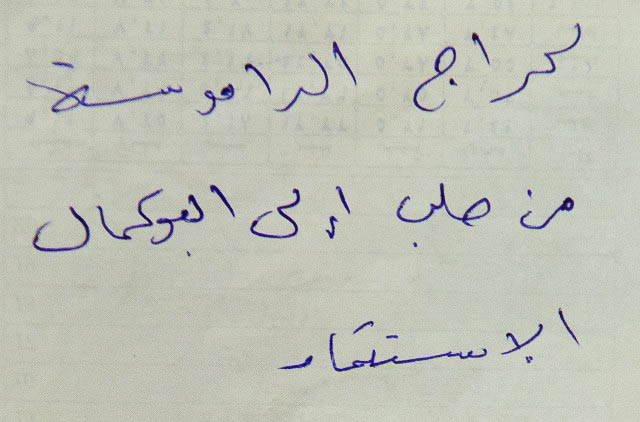 كراج الراموسة
من حلب إلى البوكمال
الإستقار